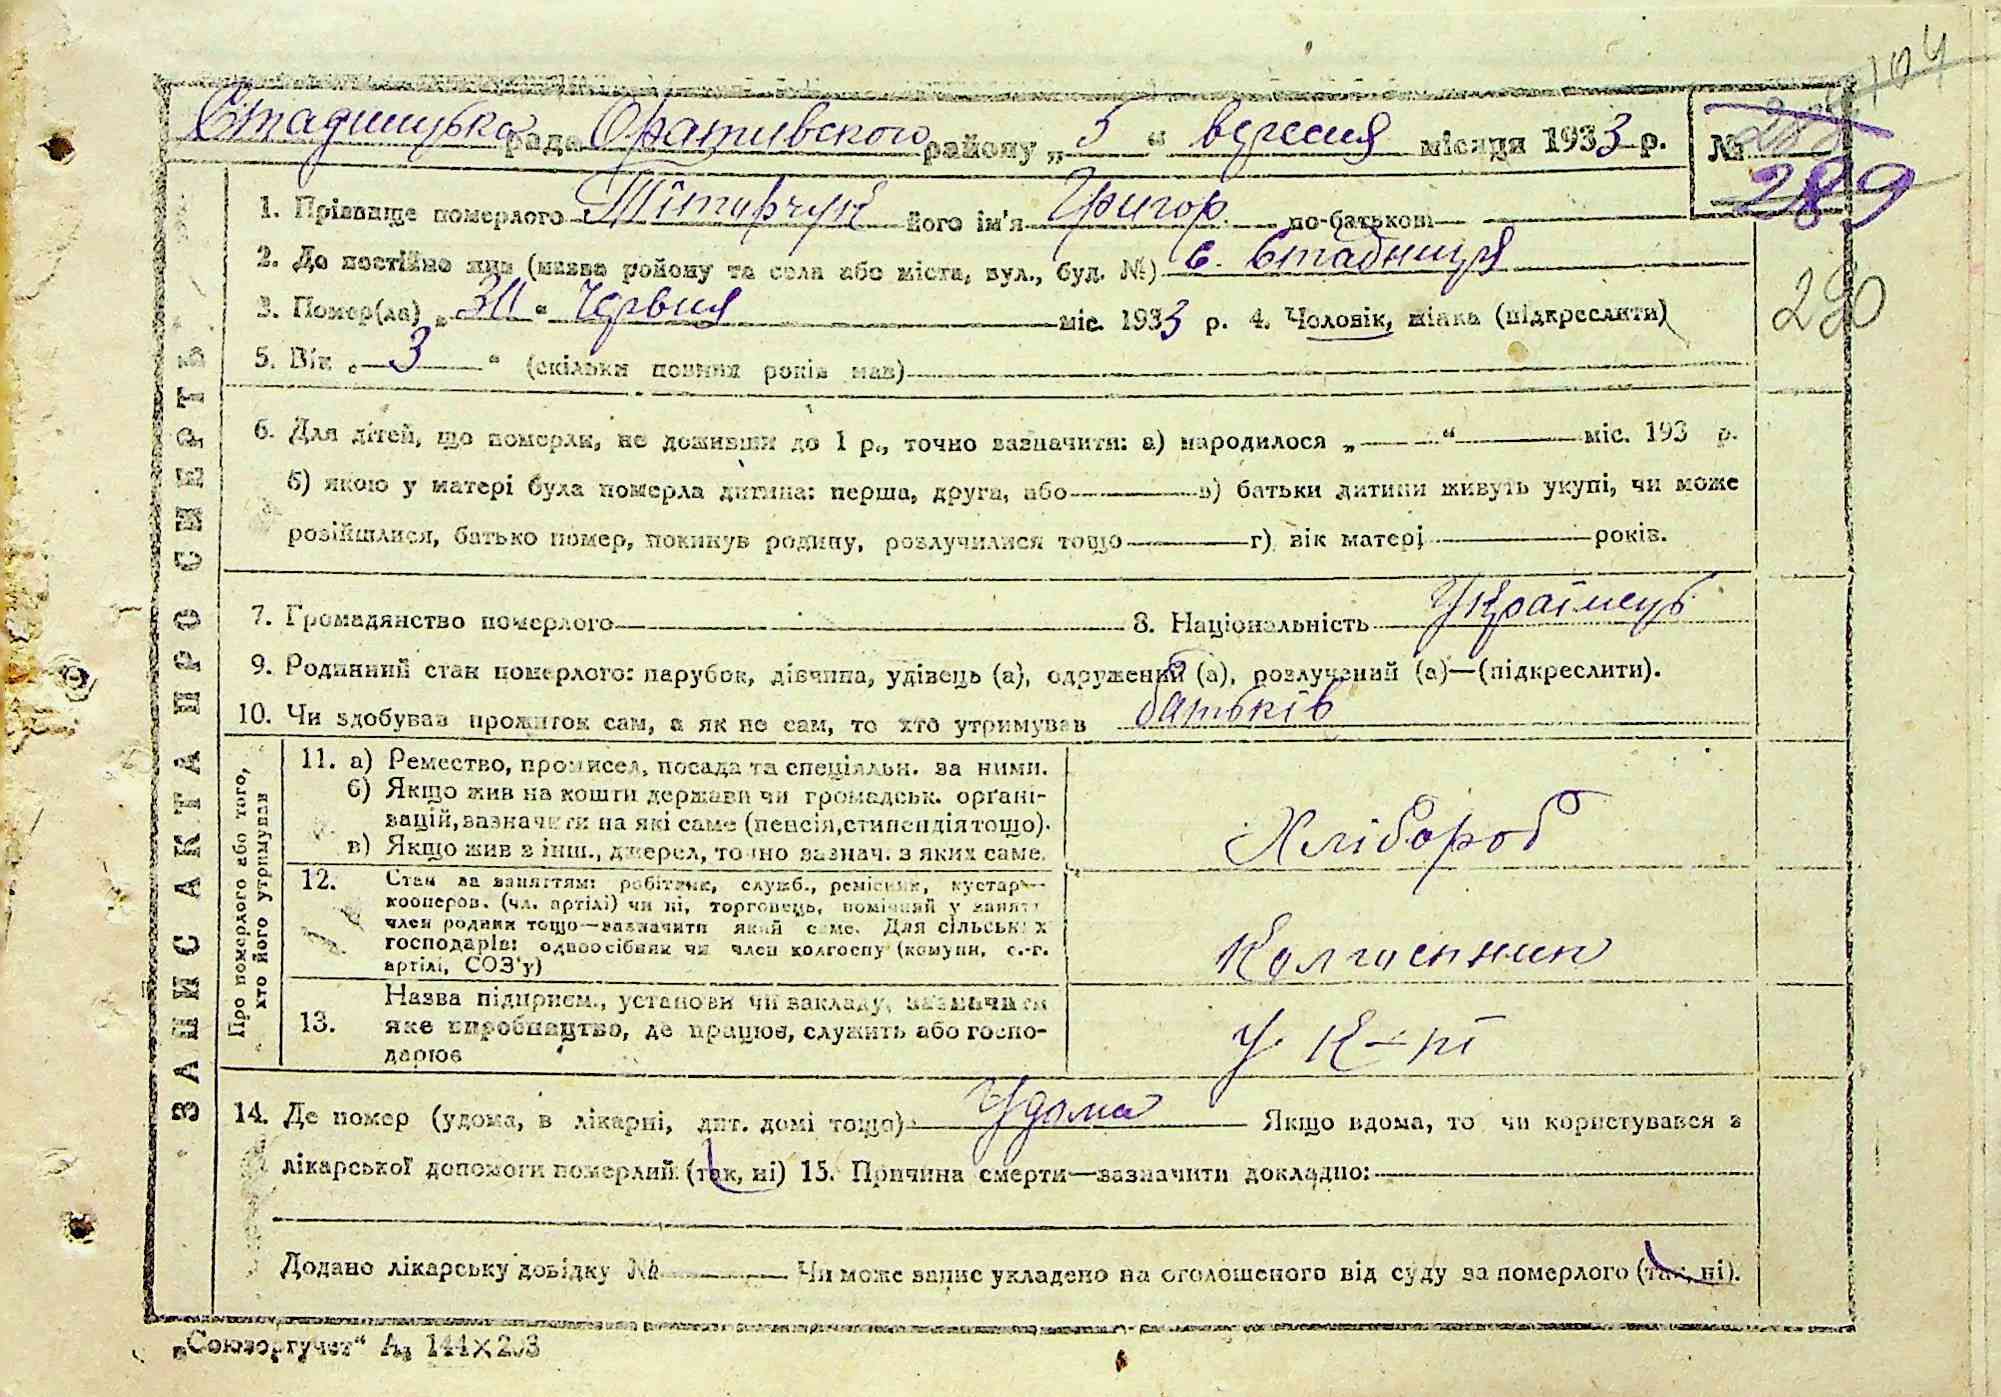 104
Стадницька рада Оратівського району „ 5 “ вересня місяця 1933 р. №
289
1. Прізвище померлого Тітарчук його ім'я Григор по-батькові
2. До постійно жив (назва району та села або міста, вул., буд. №) с. Стадниця
290
3. Помер(ла) „ 30 “ Червня міс. 1933 р. 4. Чоловік, жінка (підкреслити)
5. Вік „ 3 “ (скільки повних років мав)
6. Для дітей, що померли, не доживши до 1 р., точно зазначити: а) народилося „ “ міс. 193 р.
б) якою у матері була померла дитина: перша, друга, або в) батьки дитини живуть укупі, чи може
розійшлися, батько помер, покинув родину, розлучилися тощо г) вік матері років.
7. Громадянство померлого 8. Національність Українець
9. Родинний стан померлого: парубок, дівчина, удівець (а), одружений (а), розлучений (а)—(підкреслити).
10. Чи здобував прожиток сам, а як не сам, то хто утримував батьків
ЗАПИС АКТА ПРО СМЕРТЬ
Про померлого або того, хто його утримував
11. а) Ремество, промисел, посада та спеціяльн. за ними.
б) Якщо жив на кошти держави чи громадськ. органі-
зацій, зазначити на які саме (пенсія, стипендія тощо).
в) Якщо жив з інш., джерел, точно зазнач. з яких саме.
Хлібороб
12. Стан за заняттям: робітник, служб., ремісник, кустар—
кооперов. (чл. артілі) чи ні, торговець, помічний у занятт
член родини тощо—зазначити який саме. Для сільських
господарів: одноосібник чи член колгоспу (комуни, с.-г.
артілі, СОЗ'у)
Колгоспник
13. Назва підприєм., установи чи закладу, зазначити
яке виробництво, де працює, служить або госпо-
дарює
У к-пі
14. Де помер (удома, в лікарні, дит. домі тощо) Удома Якщо вдома, то чи користувався з
лікарської допомоги померлий (так, ні) 15. Причина смерти—зазначити докладно:
Додано лікарську довідку № Чи може запис укладено на оголошеного від суду за померлого (так, ні).
„Союзоргучет“ А₃ 144×203